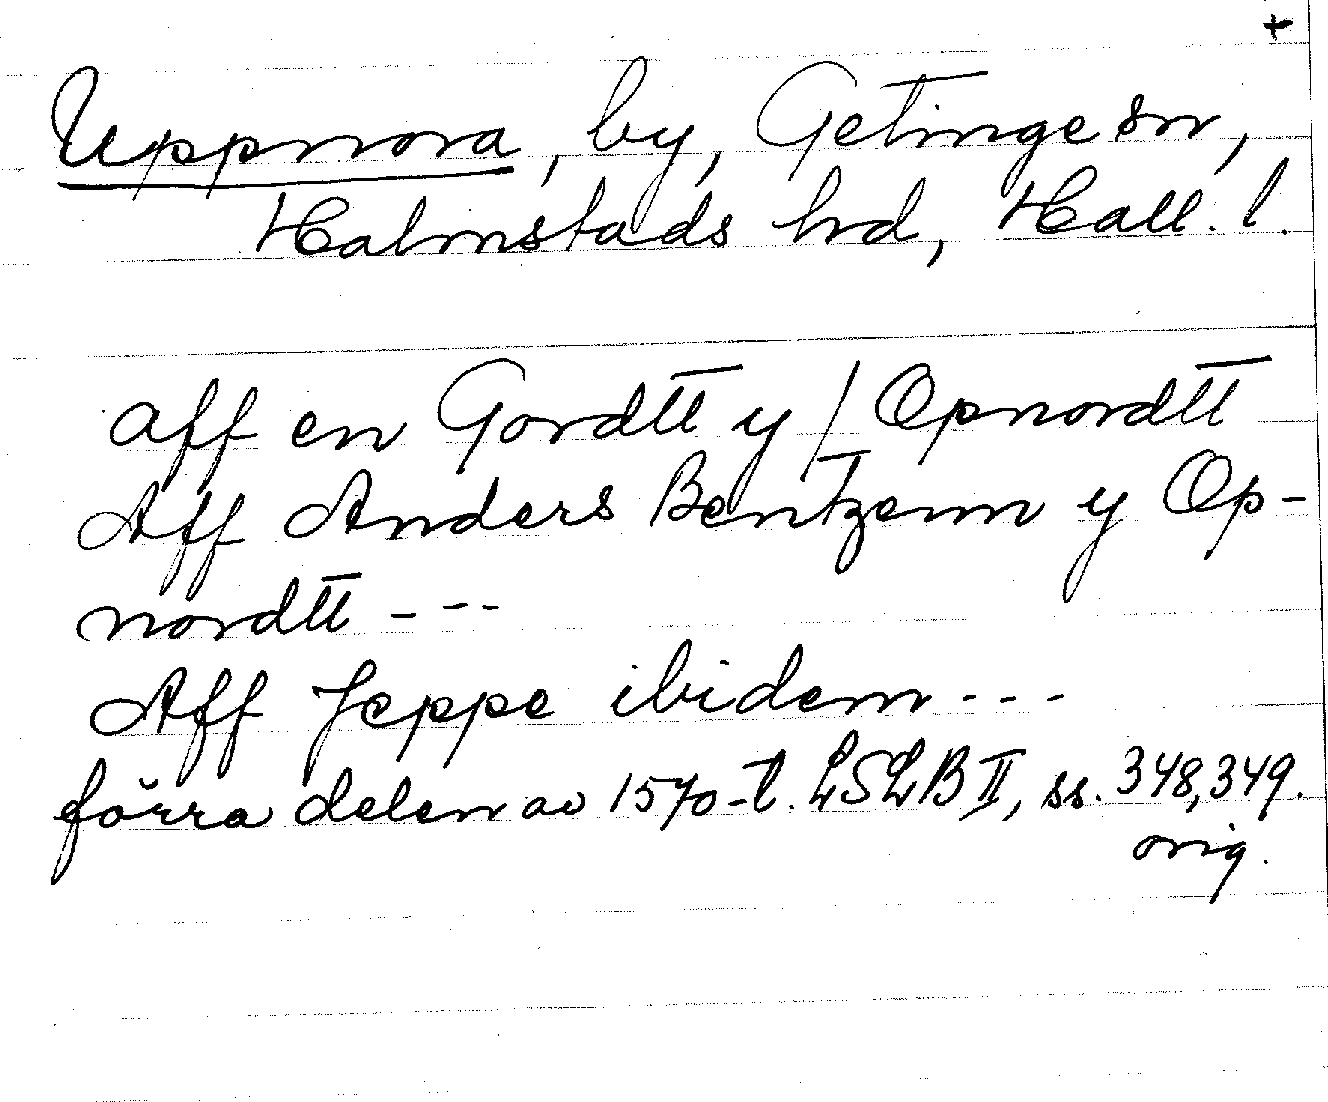 +
Uppnora, by, Getinge sn,
Halmstads hd, Hall. l.
aff en Gordtt y / Opnordtt
Aff Anders Bentzenn y Op-
nordtt - - -
Aff Jeppe ibidem - - -
förra delen av 1570-t. LSLB II, ss. 348, 349.
orig.